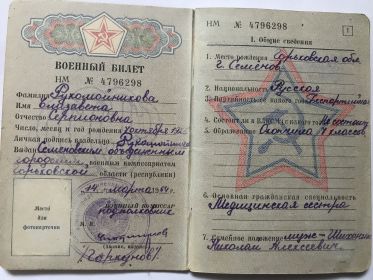 ВОЕННЫЙ БИЛЕТ
НМ № 4796298
Фамилия Рукомойникова
Имя Елизавета
Отчество Серпионовна
Число, месяц и год рождения
Личная подпись владельца
Выдан Семеновским объединенным
городским военным комиссариатом
Горьковской области
(республики)
марта
Военный комиссар
подполковник
М. П.
(Горкунов)
Место
для
фотокарточки
НМ № 4796298
1
I. Общие сведения
1. Место рождения Горьковская обл.
г. Семенов
2. Национальность Русская
3. Партийность
4. Состоит ли в ВЛКСМ Не состоит
5. Образование Окончила 7 классов
6. Основная гражданская специальность
Медицинская сестра
7. Семейное положение муж-
Николай Алексеевич